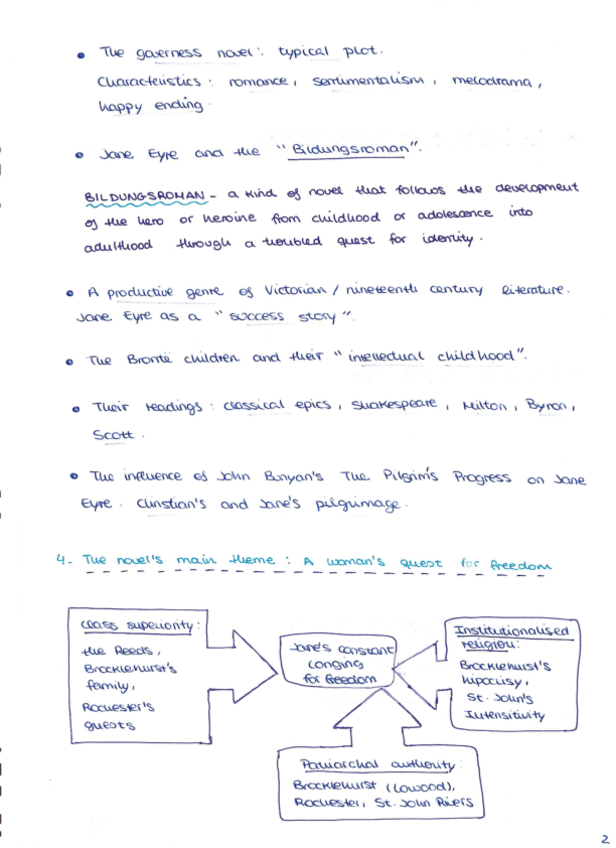 • The governess novel: typical plot.
Characteristics: romance, sentimentalism, melodrama,
happy ending.
• Jane Eyre and the "Bildungsroman".
BILDUNGSROMAN - a kind of novel that follows the development
of the hero or heroine from childhood or adolescence into
adulthood through a troubled quest for identity.
• A productive genre of Victorian / nineteenth century literature.
Jane Eyre as a "success story".
• The Brontë children and their "intellectual childhood".
• Their readings: classical epics, Shakespeare, Milton, Byron,
Scott.
• The influence of John Bunyan's The Pilgrim's Progress on Jane
Eyre. Christian's and Jane's pilgrimage.
4- The novel's main theme: A woman's quest for freedom
Class superiority:
the Reeds,
Brocklehurst's
family,
Rochester's
guests
Jane's constant
longing
for freedom
Institutionalised
religion:
Brocklehurst's
hipocrisy,
St. John's
Intensitivity
Patriarchal authority
Brocklehurst (Lowood),
Rochester, St. John Rivers
2